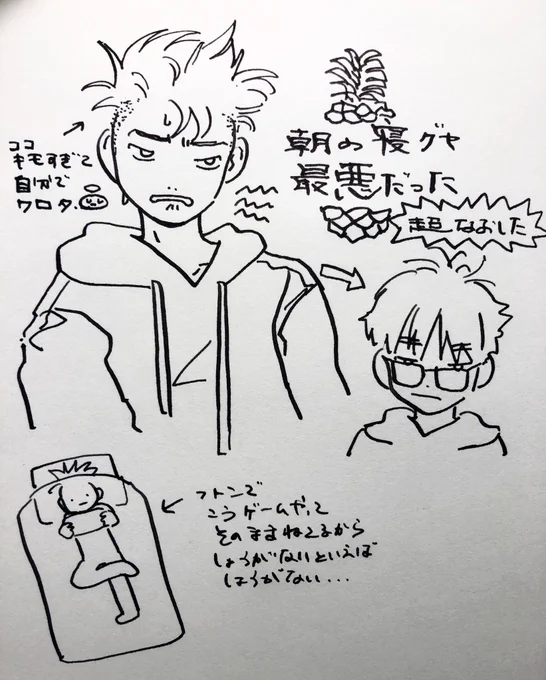 朝の寝グセ
最悪だった
ココ
キモすぎて
自分で
ワロタ.
超なおした
フトンで
こうゲームやって
そのままねてるから
しょうがないといえば
しょうがない...